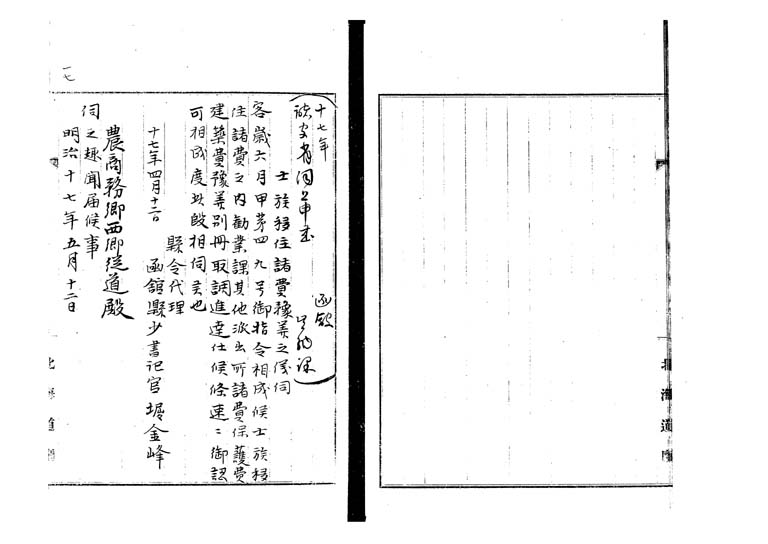 十七年
函館
士族移住諸費豫算之儀伺
客歳六月甲第四九号御指令相成候士族移
住諸費之内勧業課其他派出所諸費保護費
建築費豫算別冊取調進達仕候條速ニ御認
可相成度此段相伺候也
縣令代理
十七年四月十二日 函舘縣少書記官堀金峰
農商務卿西郷従道殿
伺之趣聞届候事
明治十七年五月十二日
北海道